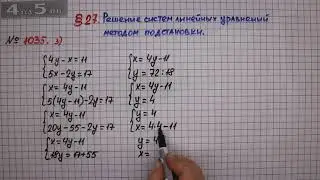 4.5
§27. Решение систем линейных уравнений
методом подстановки.
№ 1035. 3)
{4y-x=11
{5x-2y=17
{x=4y-11
{5(4y-11)-2y=17
{x=4y-11
{20y-55-2y=17
{x=4y-11
{18y=17+55
{x=4y-11
{y=72:18
{x=4y-11
{y=4
{y=4
{x=4·4-11
{y=4
{x=